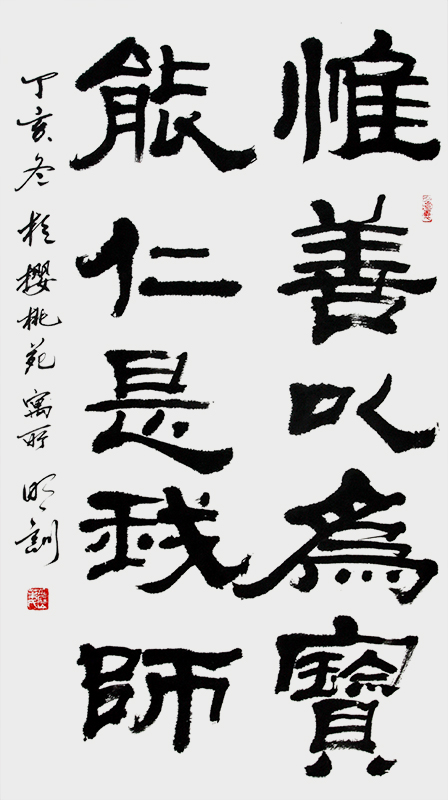 惟善以為寶
能仁是我師
丁亥冬於櫻桃苑寓所明訓